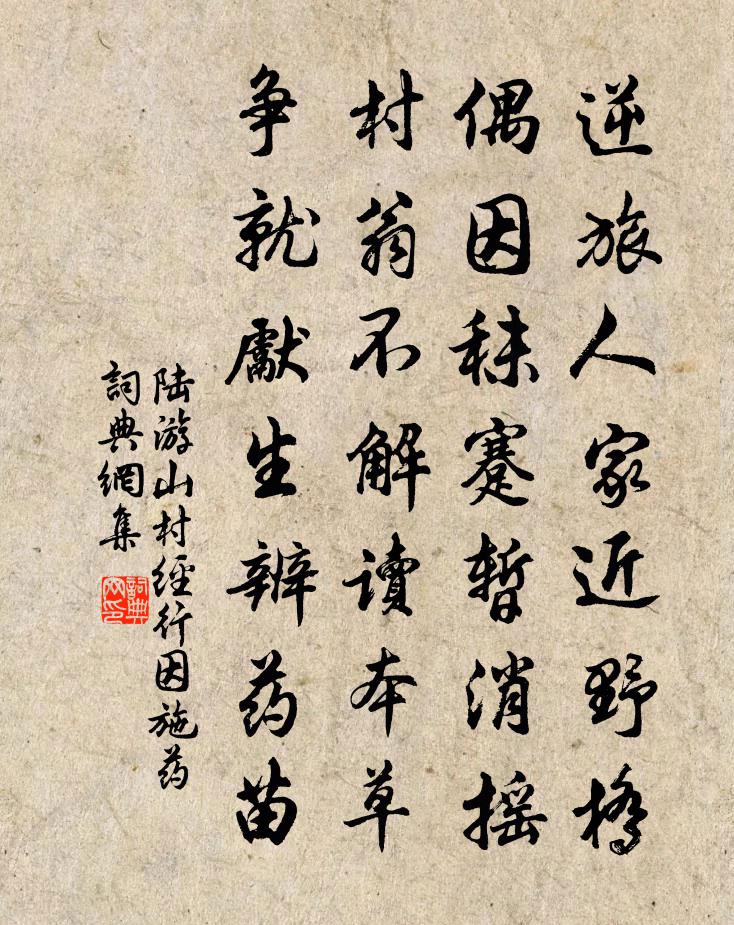 逆旅人家近野橋
偶因秣蹇暫消摇
村翁不解讀本草
争就獻生辨药苗
陆游山村經行因施药
詞典網集
詞典网印